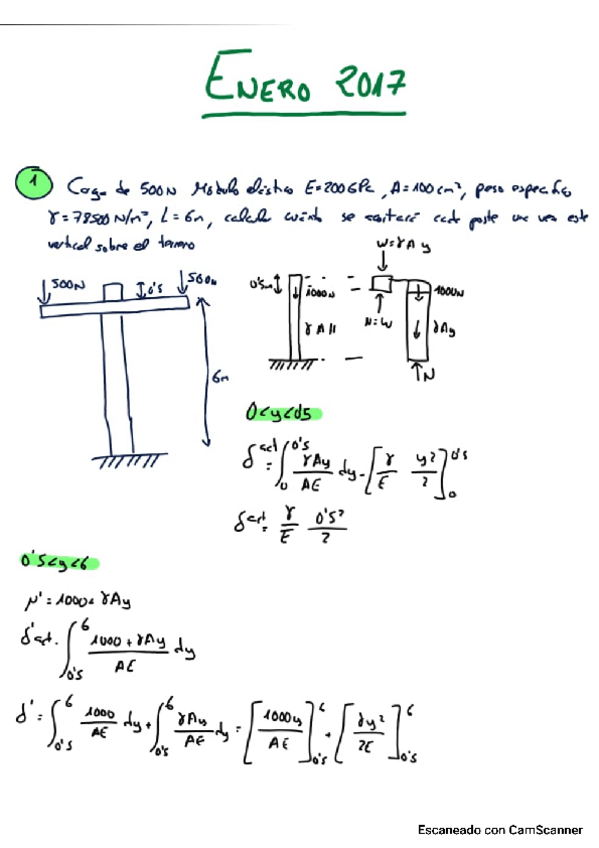 ENERO 2017
1 Carga de 500N Modulo elástico E=200GPa, A=100cm², peso específico
γ=78500 N/m³, L=6m, calcula cuánto se acortará cada poste una vez este
vertical sobre el terreno
500N 0's 500N
6m
0's 1000N γA
W=γAy
N=W
1000N γAy
N
0<y<0's
δact = ∫₀^0's γAy/AE dy = [γ/E y²/2]₀^0's
δact = γ/E 0's²/2
0's<y<6
N' = 1000 + γAy
δ'act. ∫0's^6 (1000 + γAy)/AE dy
δ' = ∫0's^6 1000/AE dy + ∫0's^6 γAy/AE dy = [1000y/AE]0's^6 + [γy²/2E]0's^6
Escaneado con CamScanner